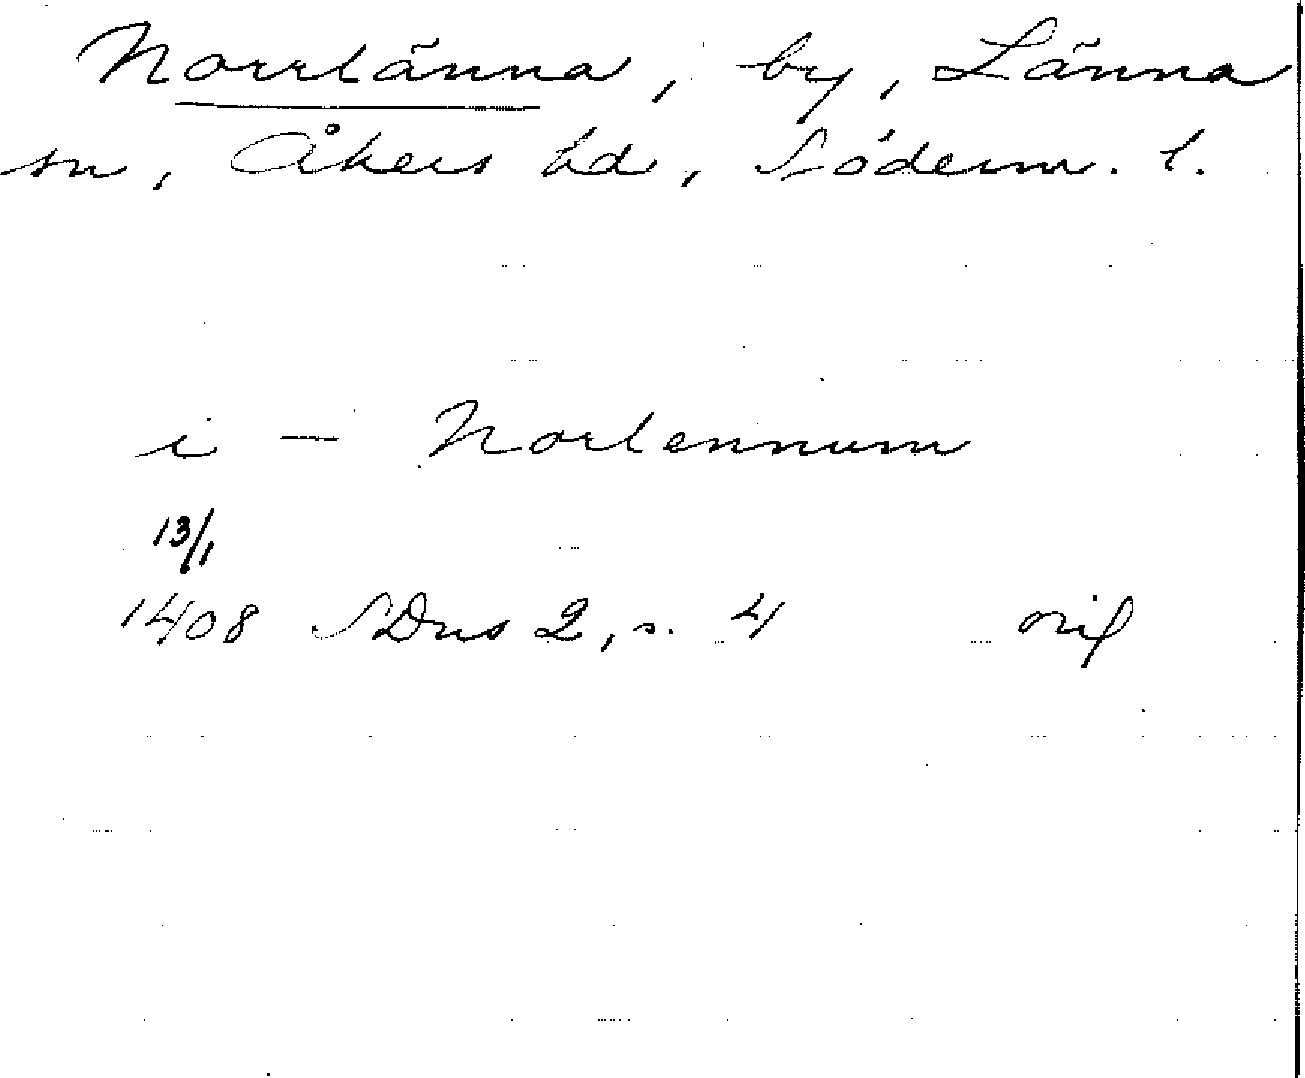 Norrlänna, by, Länna
sn, Åkers hd, Söderm. l.
i — Norlennum
13/1
1408 SDns 2, s. 4 orig